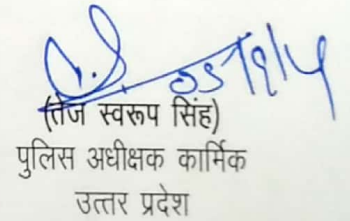 (तेज स्वरूप सिंह)
पुलिस अधीक्षक कार्मिक
उत्तर प्रदेश